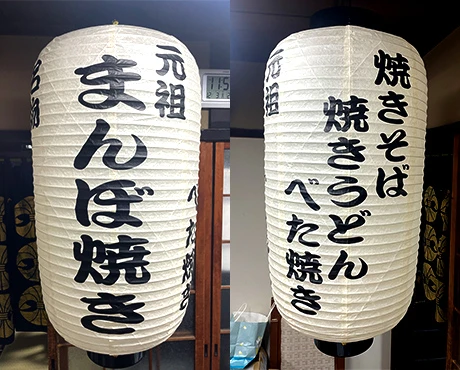 元祖
まんぼ焼き
べた焼き
11:5
元祖
焼きそば
焼きうどん
べた焼き